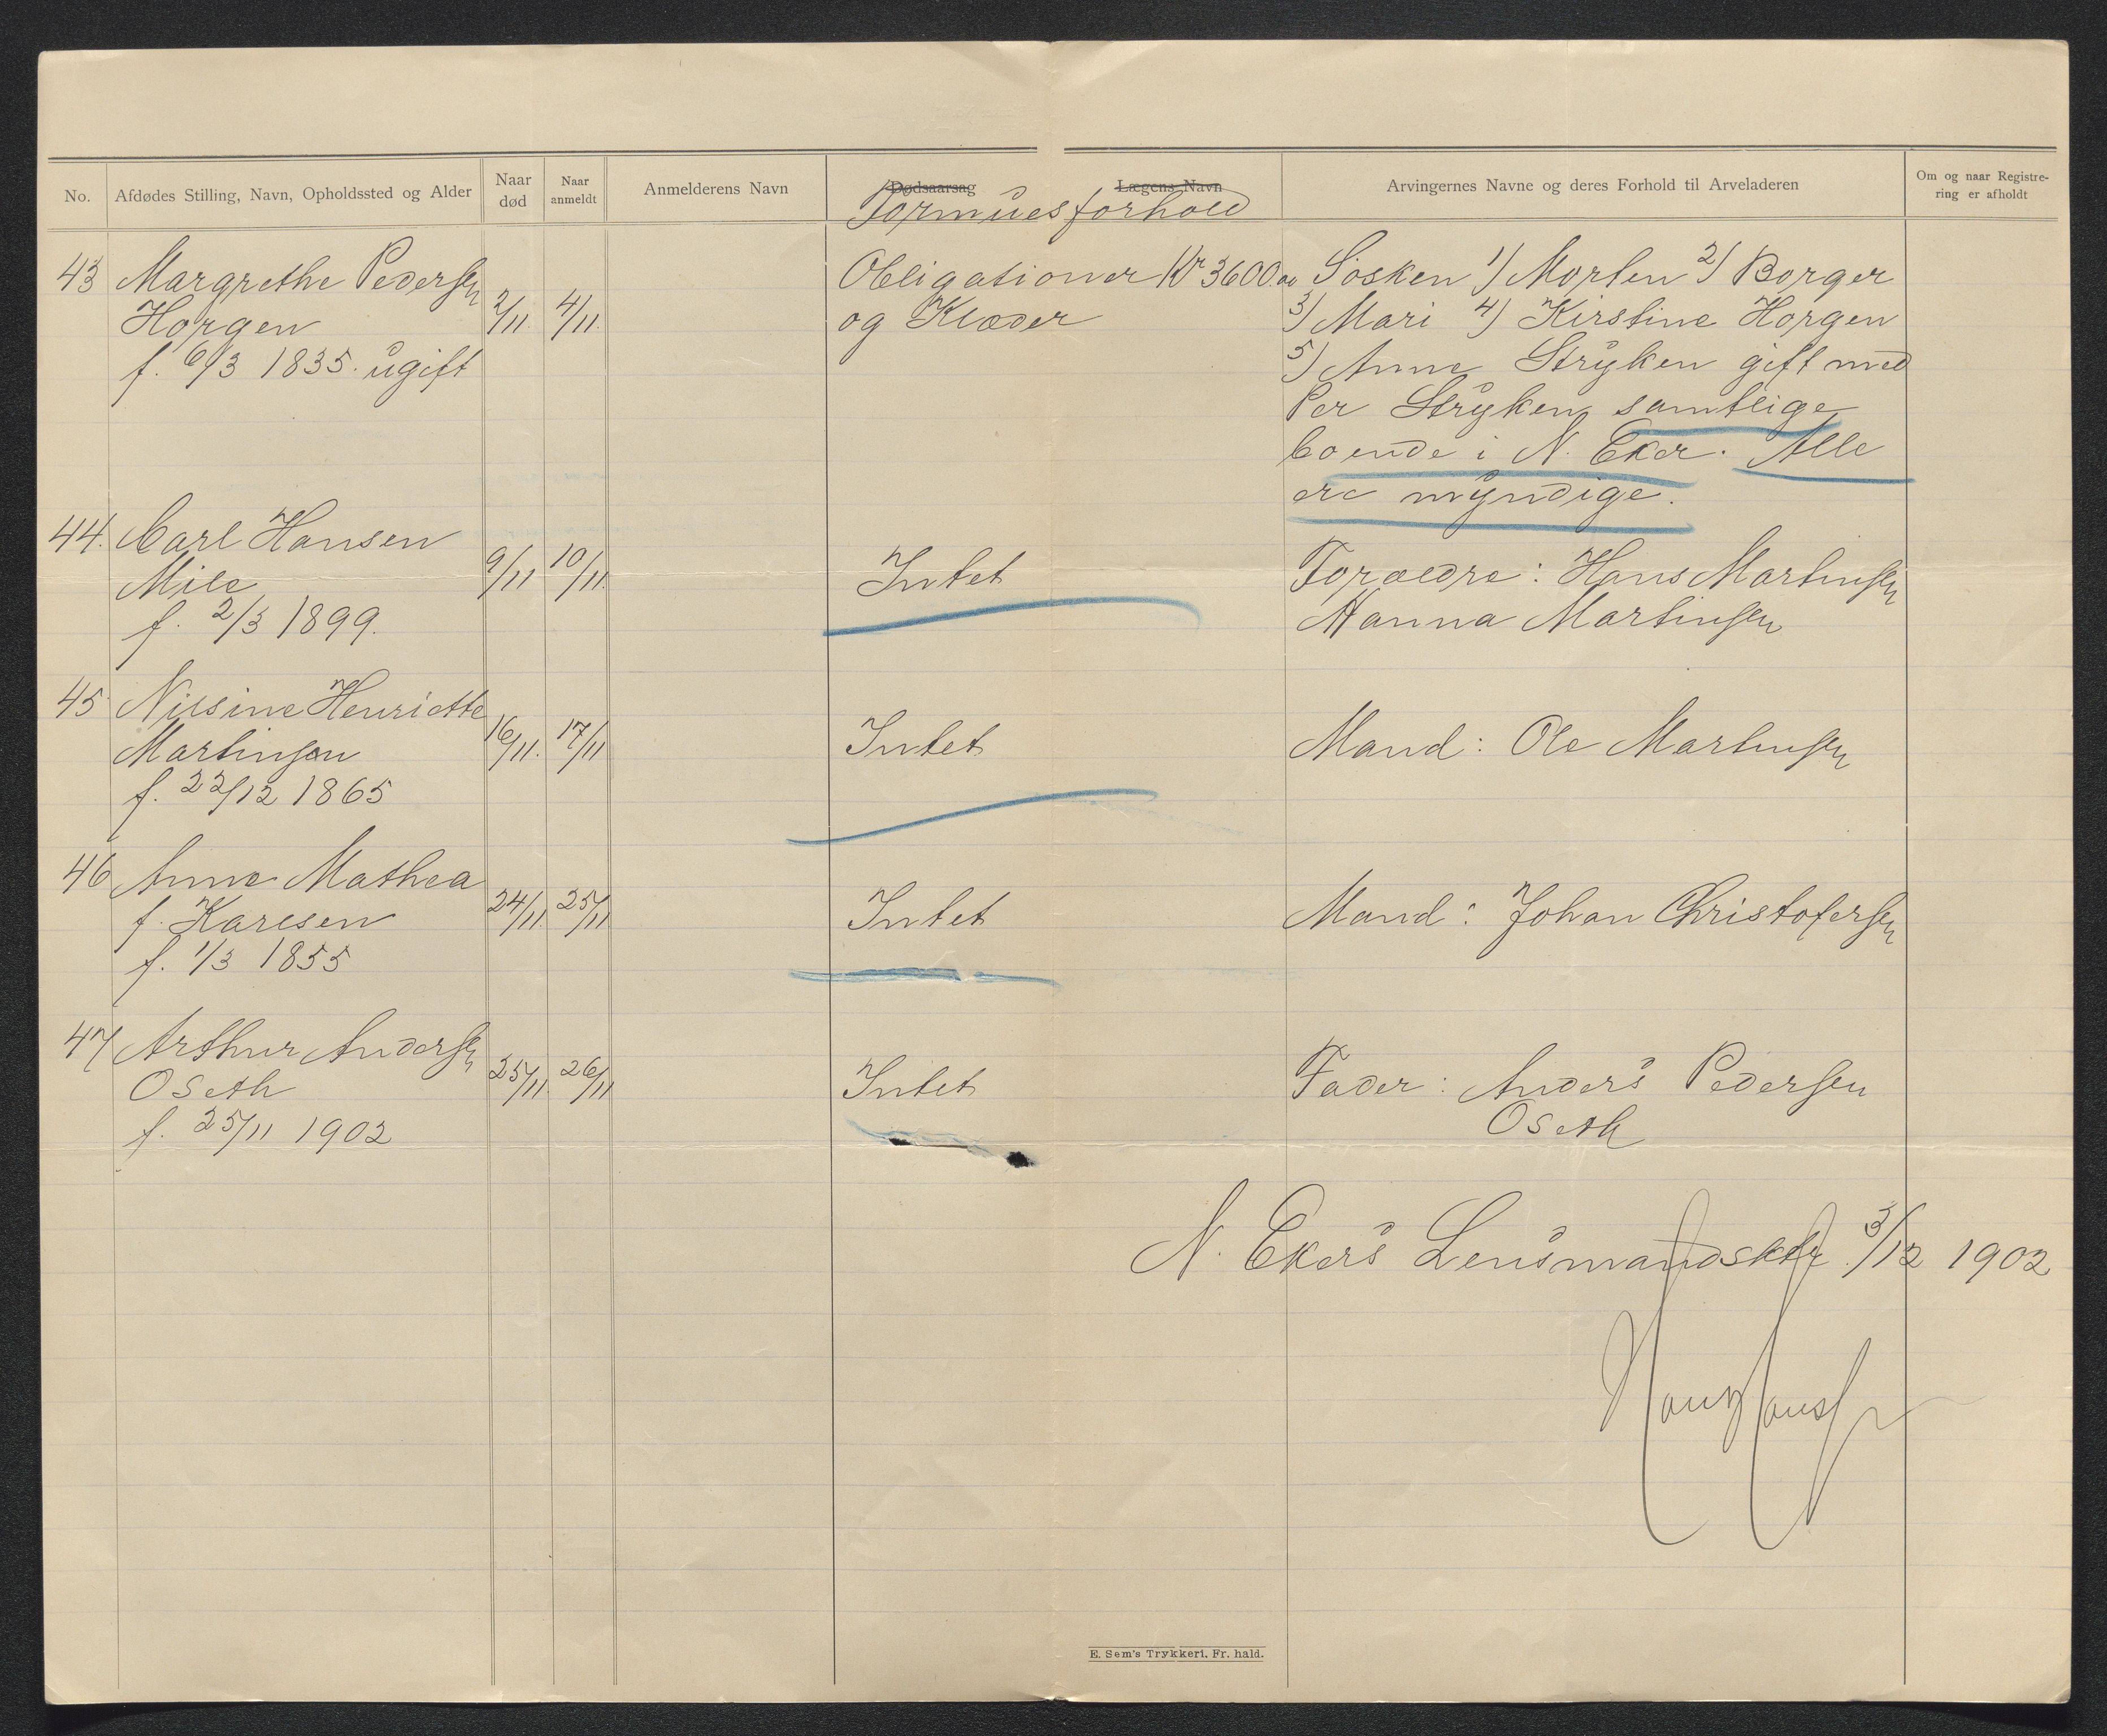 No. Afdødes Stilling, Navn, Opholdssted og Alder Naar død Naar anmeldt Anmelderens Navn Dødsaarsag Lægens Navn Arvingernes Navne og deres Forhold til Arveladeren Om og naar Registrering er afholdt
Formuesforhold
43 Margrethe Pedersen
Horgen
f. 6/3 1835. ugift
2/11. 4/11.
Obligationer Kr 3600.00
og Klæder
Søsken 1) Morten 2) Borger
3) Mari 4) Kirstine Horgen
5) Anne Stryken gift med
Per Stryken samtlige
boende i N. Eker. Alle
ere myndige.
44. Carl Hansen
Mile
f. 2/3 1899.
9/11 10/11.
Intet
Forældre: Hans Martinsen
Hanna Martinsen
45 Nilsine Henriette
Martinsen
f. 22/12 1865
16/11. 17/11
Intet
Mand: Ole Martinsen
46 Anne Mathea
f. Karlsen
f. 1/3 1855
24/11. 25/11
Intet
Mand: Johan Christofersen
47 Arthur Andersen
Oseth
f. 25/11 1902
25/11. 26/11
Intet
Fader: Anders Pedersen
Oseth
N. Ekers Lensmandsktr. 3/12 1902
E. Sem's Trykkeri. Fr. hald.